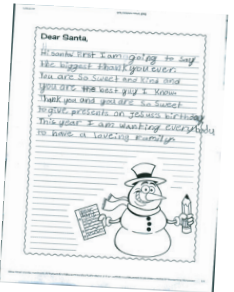 Dear Santa,
Hi santa first I am going to say
the biggest thank you even
You are so sweet and kind and
you are the best guy I know
Thank you and you are so sweet
to give presents on jesuses birthday
This year I am wanting everybody
to have a loveing